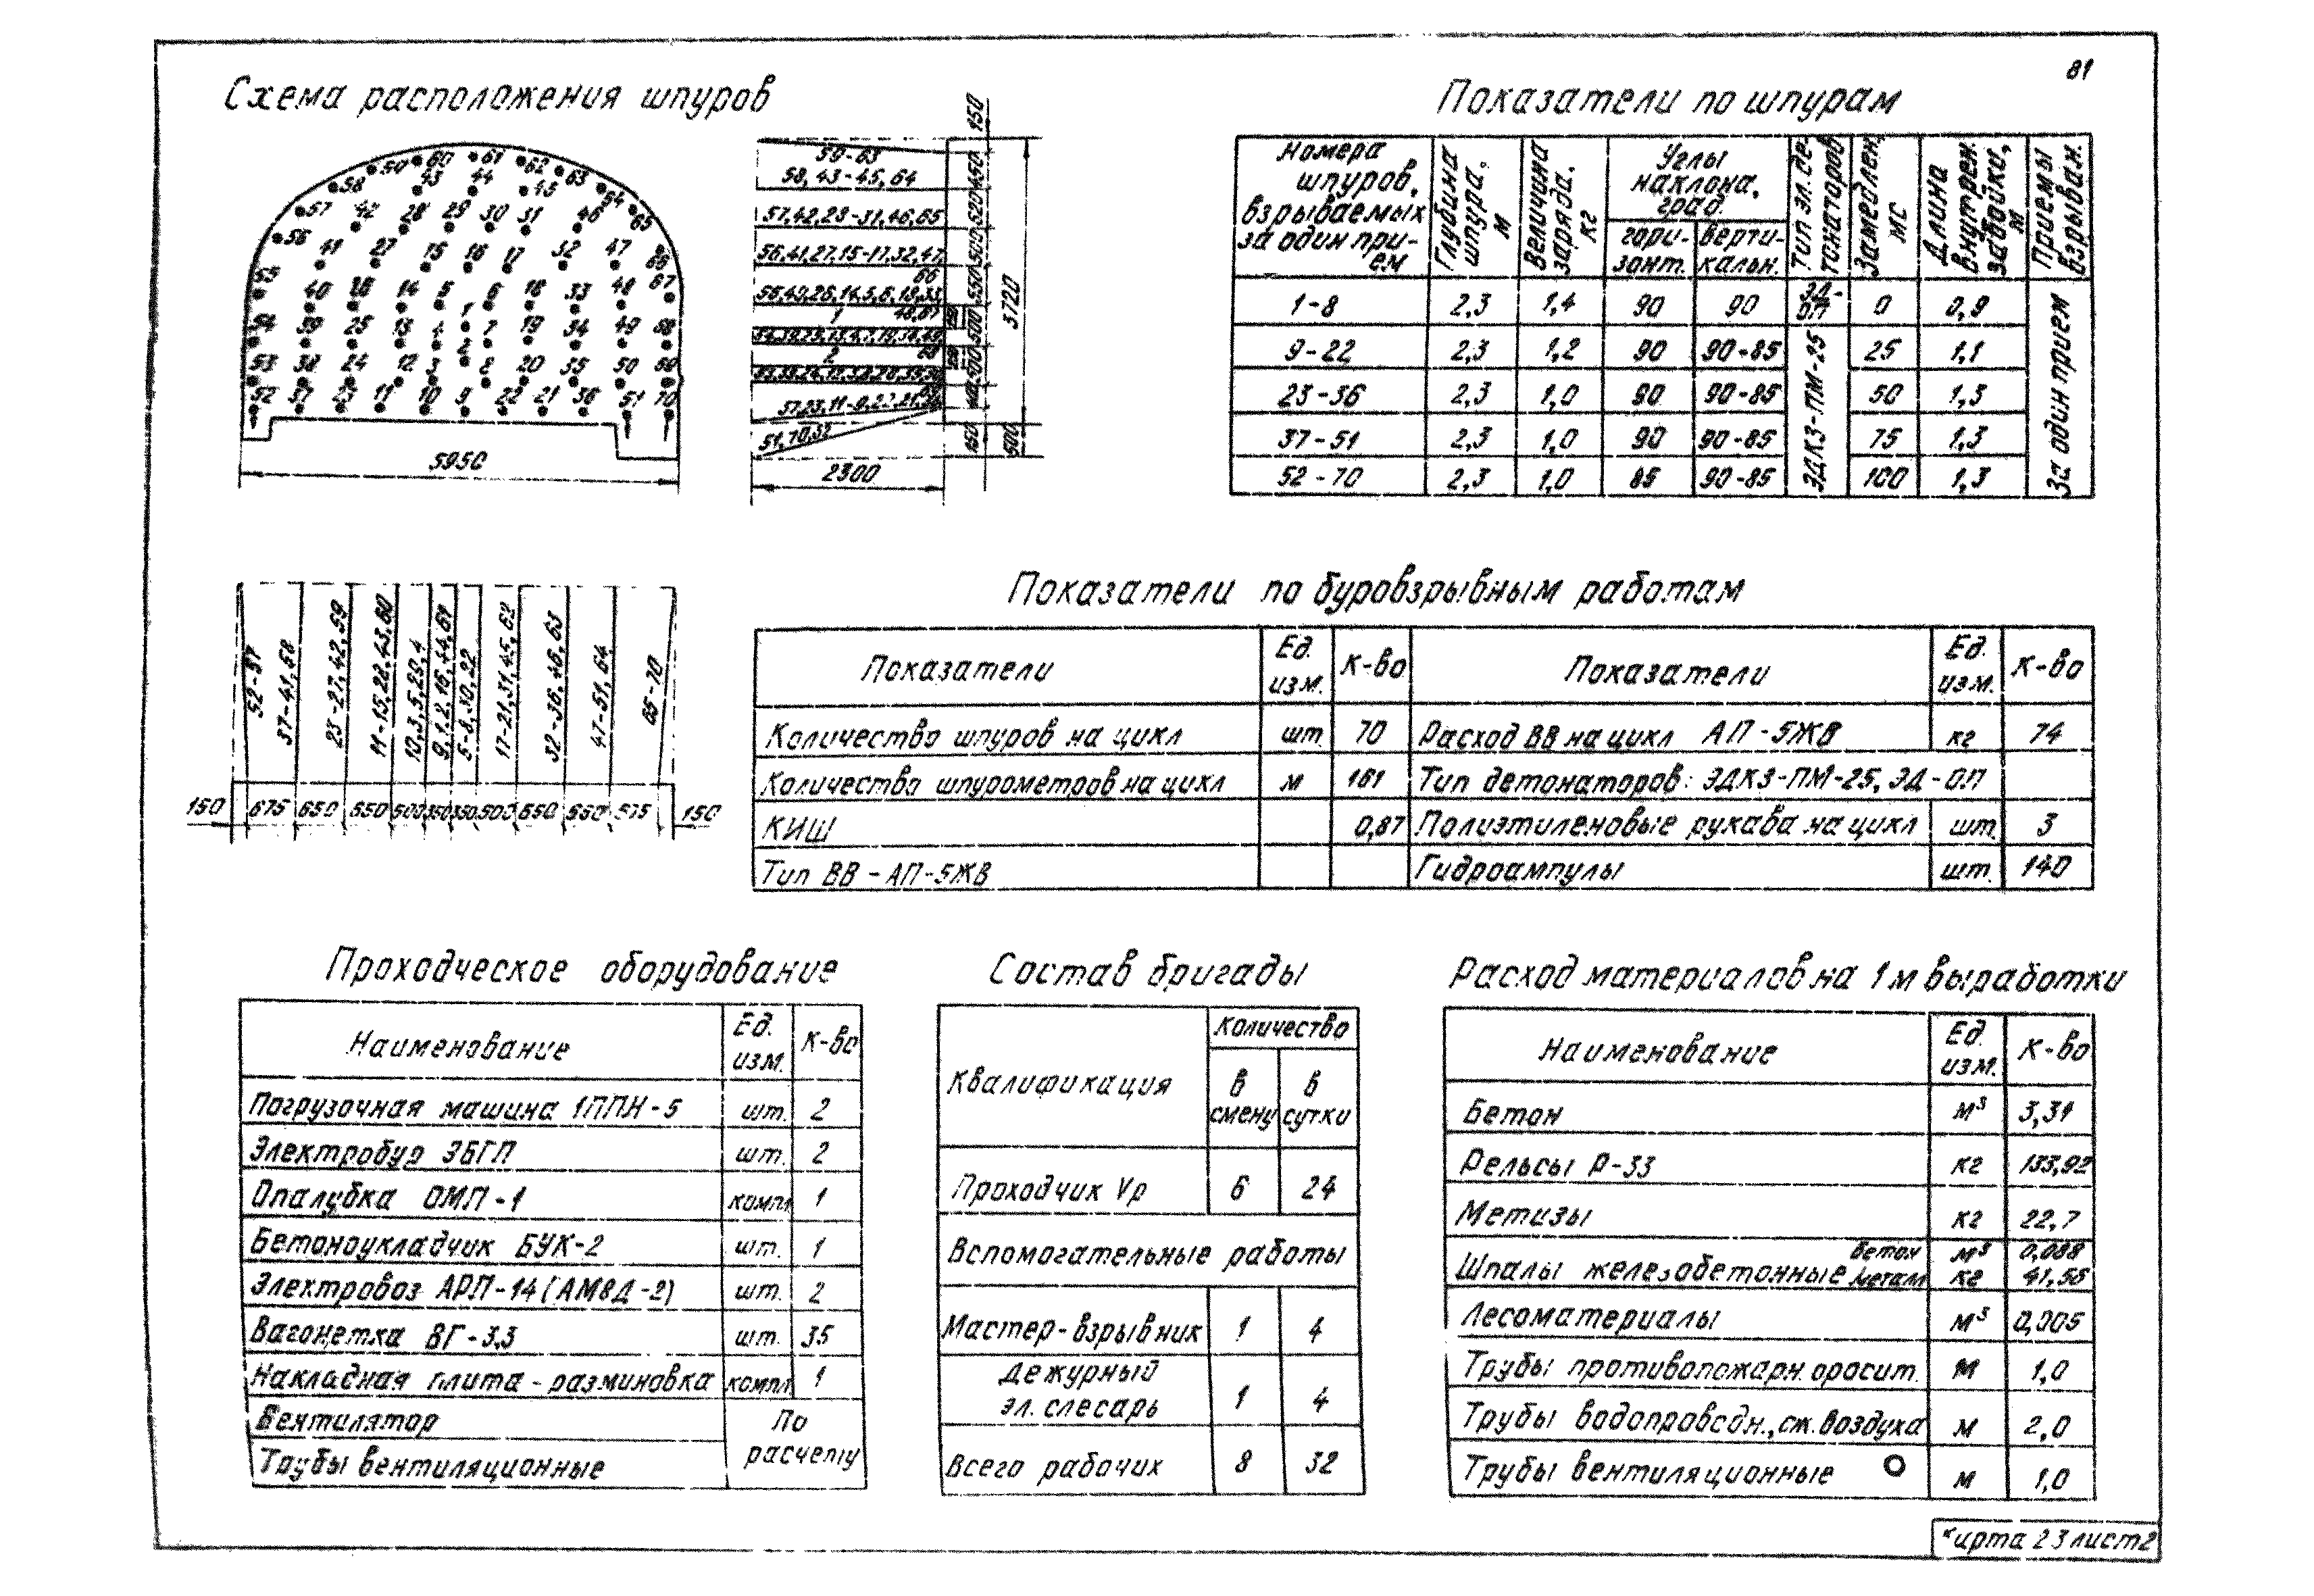 81
Схема расположения шпуров
59-63
58, 43-45, 64
57,42,28-31,46,65
56,41,27,15-17,32,47,
66
1
2
51,70,52
150
450
520
500
550
500
500
3720
150
500
2300
5950
52-57
37-41,58
23-27,42,59
11-15,28,43,60
10,3,5,29,4
17-21,31,45,62
32-36,46,63
47-51,64
65-70
150 675 650 650 500 350 350 500 550 550 575 150
Показатели по шпурам
Номера шпуров, взрываемых за один прием
Глубина шпура, м
Величина заряда, кг
Углы наклона, град.
горизонт.
вертикальн.
Тип эл. детонаторов
Замедлен, мс
Длина внутрен. забойки, м
Приемы взрыван.
1-8 2,3 1,4 90 90 ЭД-ОП 0 0,9
9-22 2,3 1,2 90 90-85 25 1,1
23-36 2,3 1,0 90 90-85 50 1,3
37-51 2,3 1,0 90 90-85 75 1,3
52-70 2,3 1,0 85 90-85 100 1,3
ЭДКЗ-ПМ-25
За один прием
Показатели по буровзрывным работам
Показатели Ед. изм. К-во Показатели Ед. изм. К-во
Количество шпуров на цикл шт. 70 Расход ВВ на цикл АП-5ЖВ кг 74
Количество шпурометров на цикл м 161 Тип детонаторов: ЭДКЗ-ПМ-25, ЭД-ОП
КИШ 0,87 Полиэтиленовые рукава на цикл шт. 3
Тип ВВ - АП-5ЖВ Гидроампулы шт. 140
Проходческое оборудование
Наименование Ед. изм. К-во
Погрузочная машина 1ППН-5 шт. 2
Электробур ЭБГП шт. 2
Опалубка ОМП-1 компл 1
Бетоноукладчик БУК-2 шт. 1
Электровоз АРП-14 (АМ8Д-2) шт. 2
Вагонетка ВГ-3,3 шт. 35
Накладная плита-разминовка компл 1
Вентилятор По
Трубы вентиляционные расчету
Состав бригады
Квалификация Количество
в смену в сутки
Проходчик Vр 6 24
Вспомогательные работы
Мастер-взрывник 1 4
Дежурный
эл. слесарь 1 4
Всего рабочих 8 32
Расход материалов на 1 м выработки
Наименование Ед. изм. К-во
Бетон м³ 3,31
Рельсы Р-33 кг 133,92
Метизы кг 22,7
Шпалы железобетонные бетон м³ 0,088
металл кг 41,55
Лесоматериалы м³ 0,005
Трубы противопожарн. оросит. м 1,0
Трубы водопроводн., сж. воздуха м 2,0
Трубы вентиляционные м 1,0
Карта 23 лист 2